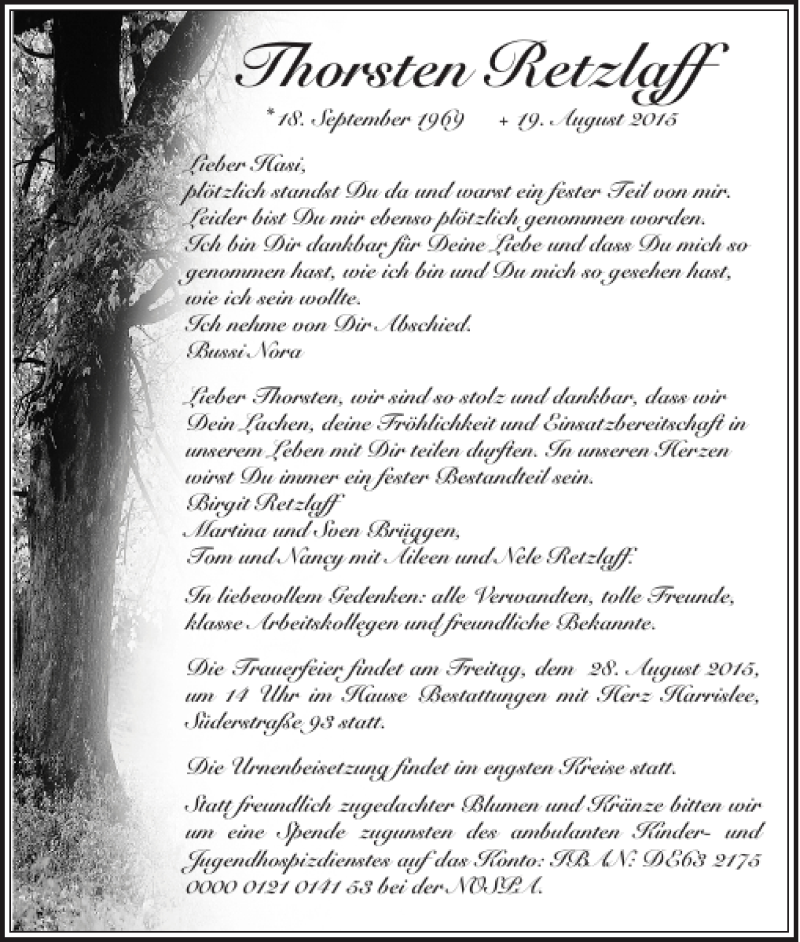 Thorsten Retzlaff
* 18. September 1969 + 19. August 2015
Lieber Hasi,
plötzlich standst Du da und warst ein fester Teil von mir.
Leider bist Du mir ebenso plötzlich genommen worden.
Ich bin Dir dankbar für Deine Liebe und dass Du mich so
genommen hast, wie ich bin und Du mich so gesehen hast,
wie ich sein wollte.
Ich nehme von Dir Abschied.
Bussi Nora
Lieber Thorsten, wir sind so stolz und dankbar, dass wir
Dein Lachen, deine Fröhlichkeit und Einsatzbereitschaft in
unserem Leben mit Dir teilen durften. In unseren Herzen
wirst Du immer ein fester Bestandteil sein.
Birgit Retzlaff
Martina und Sven Brüggen,
Tom und Nancy mit Aileen und Nele Retzlaff.
In liebevollem Gedenken: alle Verwandten, tolle Freunde,
klasse Arbeitskollegen und freundliche Bekannte.
Die Trauerfeier findet am Freitag, dem 28. August 2015,
um 14 Uhr im Hause Bestattungen mit Herz Harrislee,
Süderstraße 93 statt.
Die Urnenbeisetzung findet im engsten Kreise statt.
Statt freundlich zugedachter Blumen und Kränze bitten wir
um eine Spende zugunsten des ambulanten Kinder- und
Jugendhospizdienstes auf das Konto: IBAN: DE63 2175
0000 0121 0141 53 bei der NOSPA.